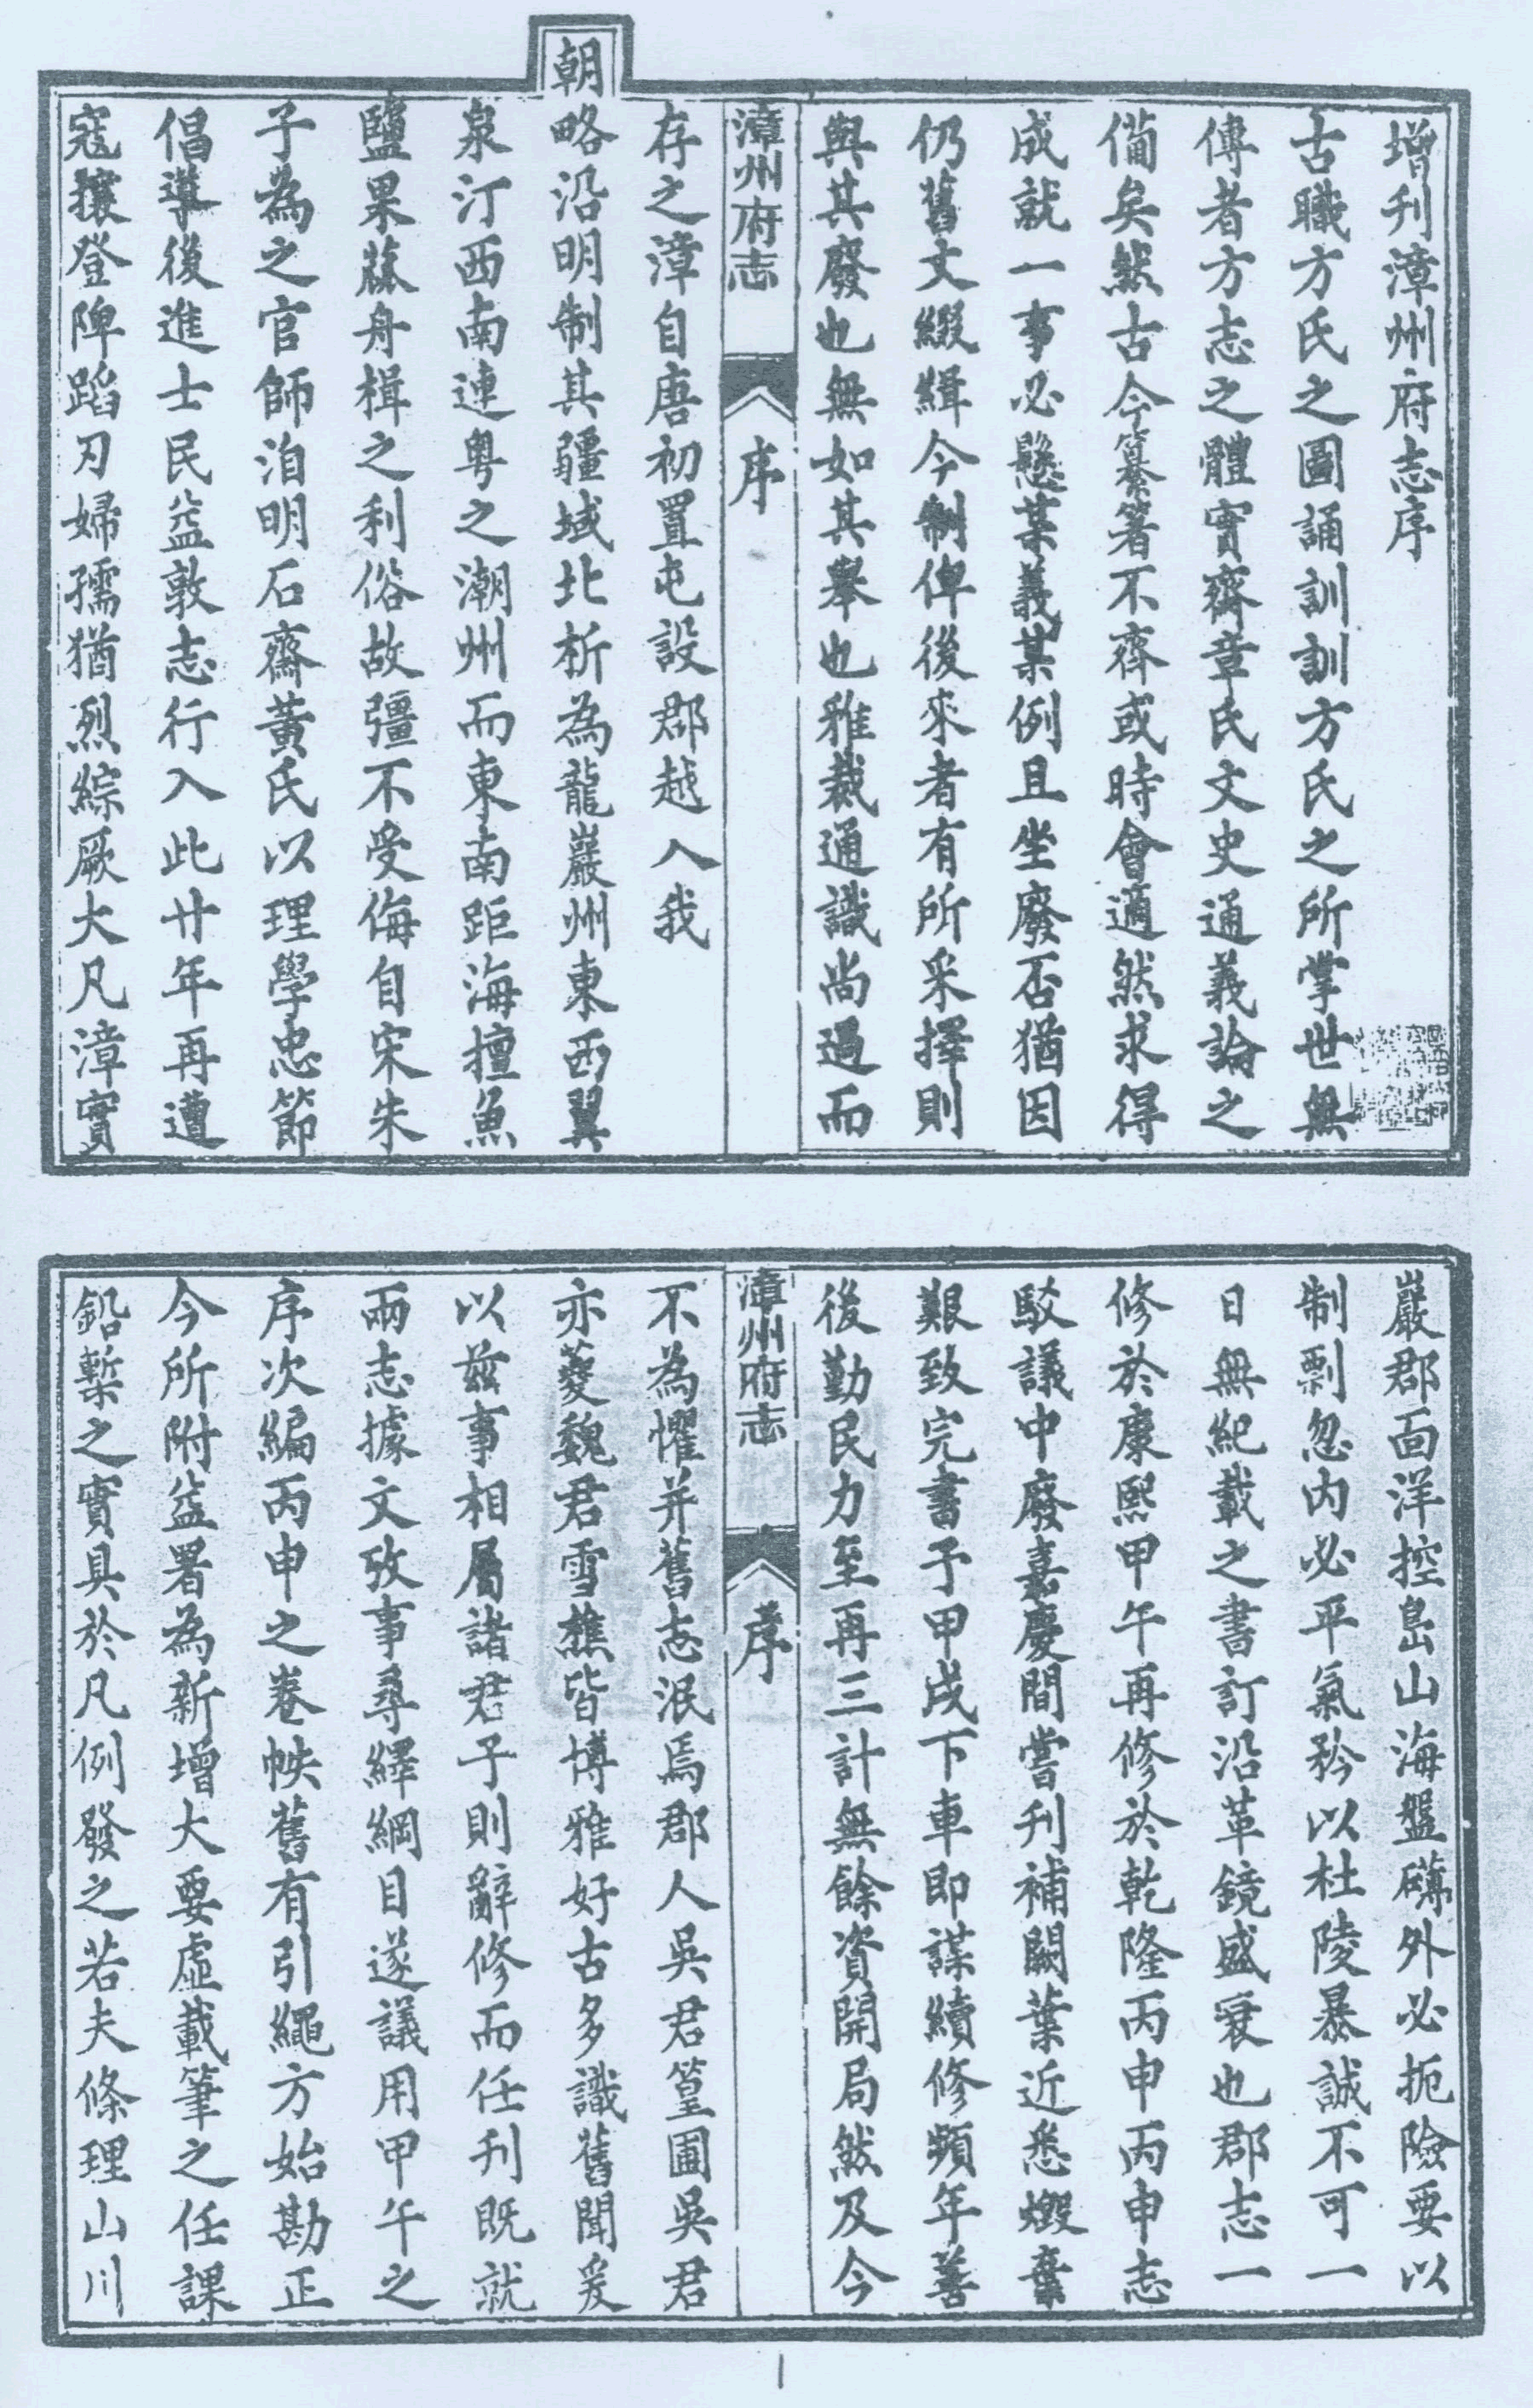 增刊漳州府志序
古職方氏之圖誦訓訓方氏之所掌世無
傳者方志之體實齋章氏文史通義論之
備矣然古今纂箸不齊或時會適然求得
成就一事必懸某義某例且坐廢否猶因
仍舊文綴緝今制俾後來者有所采擇則
與其廢也無如其舉也雅裁通識尚過而
漳州府志 序
存之漳自唐初置屯設郡越入我
朝略沿明制其疆域北析為龍巖州東西翼
泉汀西南連粵之潮州而東南距海擅魚
鹽果蓏舟楫之利俗故彊不受侮自宋朱
子為之官師洎明石齋黃氏以理學忠節
倡導後進士民益敦志行入此廿年再遭
寇攘登陴蹈刃婦孺猶烈綜厥大凡漳實
巖郡面洋控島山海盤礴外必扼險要以
制剽忽內必平氣矜以杜陵暴誠不可一
日無紀載之書訂沿革鏡盛衰也郡志一
修於康熙甲午再修於乾隆丙申丙申志
駁議中廢嘉慶間嘗刊補闕葉近悉燬棄
艱致完書予甲戌下車即謀續修頻年善
後勤民力至再三計無餘資開局然及今
漳州府志 序
不為懼并舊志泯焉郡人吳君篁圃吳君
亦夔魏君雪樵皆博雅好古多識舊聞爰
以茲事相屬諸君子則辭修而任刊既就
兩志據文攷事尋繹綱目遂議用甲午之
序次編丙申之卷帙舊有引繩方始勘正
今所附益署為新增大要虛載筆之任課
鉛槧之實具於凡例發之若夫條理山川
1